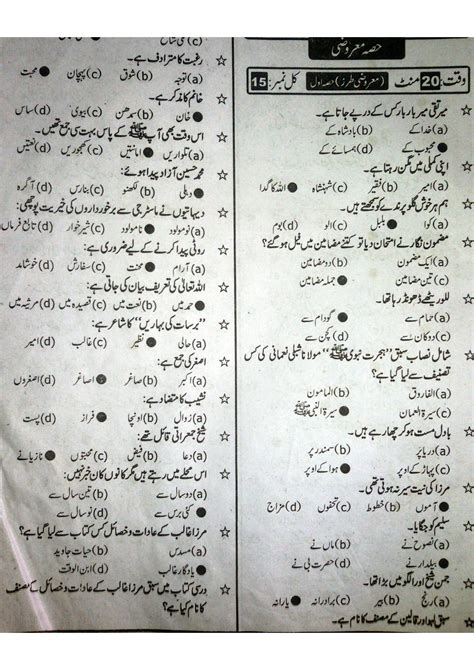 حصہ معروضی
وقت: 20 منٹ (معروضی طرز) حصہ اول کل نمبر: 15
☆ میر تقی میر بار بار کس کے در پے جاتا ہے۔
(a) خدا کے (b) بادشاہ کے
● محبوب کے (d) ہمسائے کے
☆ اپنی کملی میں مگن رہتا ہے۔
(a) امیر (b) فقیر (c) شہنشاہ ● اللہ کا گدا
☆ ہم ہر خوش گلو پرندے کو سمجھتے ہیں۔
● بلبل (c) الو (d) بوم
☆ مضمون نگار نے امتحان دیا تو کتنے مضامین میں فیل ہو گئے؟
(a) ایک مضمون (b) دو مضامین
(c) تین مضامین ● جملہ مضامین
☆ للو رسے ڈھونڈ رہا تھا۔
● گودام سے
(c) دوکان سے (d) کچن سے
☆ شامل نصاب سبق "ہجرت نبوی ﷺ" مولانا شبلی نعمانی کی کس
تصنیف سے لیا گیا ہے؟
(a) الفاروق (b) المامون
(c) سیرۃ النعمان ● سیرۃ النبی ﷺ
☆ بادل مست ہو کر چھا رہے ہیں۔
(a) پہاڑ کے اوپر (b) سمندر پر
● ہوا کے اوپر
☆ مرزا کی نیت سیر نہ ہوتی تھی۔
● آموں (b) خطوط (c) تحفوں (d) مزاج
☆ سلیم کو جگایا۔
(a) نصوح نے (b) ماں نے
● بیدار نے (d) حضرت بی نے
☆ جمن شیخ اور الگو میں بڑا تھا۔
(a) رنج (b) بیر (c) برادرانہ ● یارانہ
☆ سبق لہو اور قالین کے مصنف کا نام ہے۔
☆ رغبت کا مترادف ہے۔
(a) توجہ (b) شوق (c) پہچان ● محبت
☆ خانم کا مذکر ہے۔
● خان (b) سمدھن (c) بیوی (d) ساس
☆ اس وقت بھی آپ ﷺ کے پاس بہت سی جمع تھیں۔
(a) تلواریں ● امانتیں (c) کھجوریں (d) نعتیں
☆ محمد حسین آزاد پیدا ہوئے:
● دہلی (b) لکھنو (c) بنارس (d) آگرہ
☆ دیہاتوں نے ماسٹر جی سے برخورداروں کی خیریت پوچھی:
(a) نومولود ● نامولود (c) شیر خوار (d) تابع فرماں
☆ روٹی پیدا کرنے کے لیے ضروری ہے:
(a) آرام ● محنت (c) سفارش (d) خوشامد
☆ اللہ تعالٰی کی تعریف بیان کی جاتی ہے:
● حمد میں (b) نعت میں (c) قصیدہ میں (d) مرثیہ میں
☆ "برسات کی بہاریں" کا شاعر ہے:
(a) حالی ● نظیر (c) غالب (d) امیر
☆ اصغر کی جمع ہے:
(a) اکبر ● اصاغر (c) صغائر (d) اصغروں
☆ نشیب کا متضاد ہے:
(a) زوال (b) اونچا ● فراز (d) پست
☆ شیخ جمعراتی قائل تھے:
(a) دعا (b) فیض (c) محبتوں ● تازیانے
☆ اس محلے میں رہتے ہیں مگر کانوں کان خبر نہیں:
(a) دو سال سے (b) تین سال سے
● کئی برس سے (d) نو سال سے
☆ مرزا غالب کے عادات و خصائل کس کتاب سے لیا گیا ہے؟
(a) مسدس (b) حیات جاوید
● یادگار غالب (d) ابن الوقت
☆ درسی کتاب میں سبق مرزا غالب کے عادات و خصائل کے مصنف
کا نام کیا ہے؟